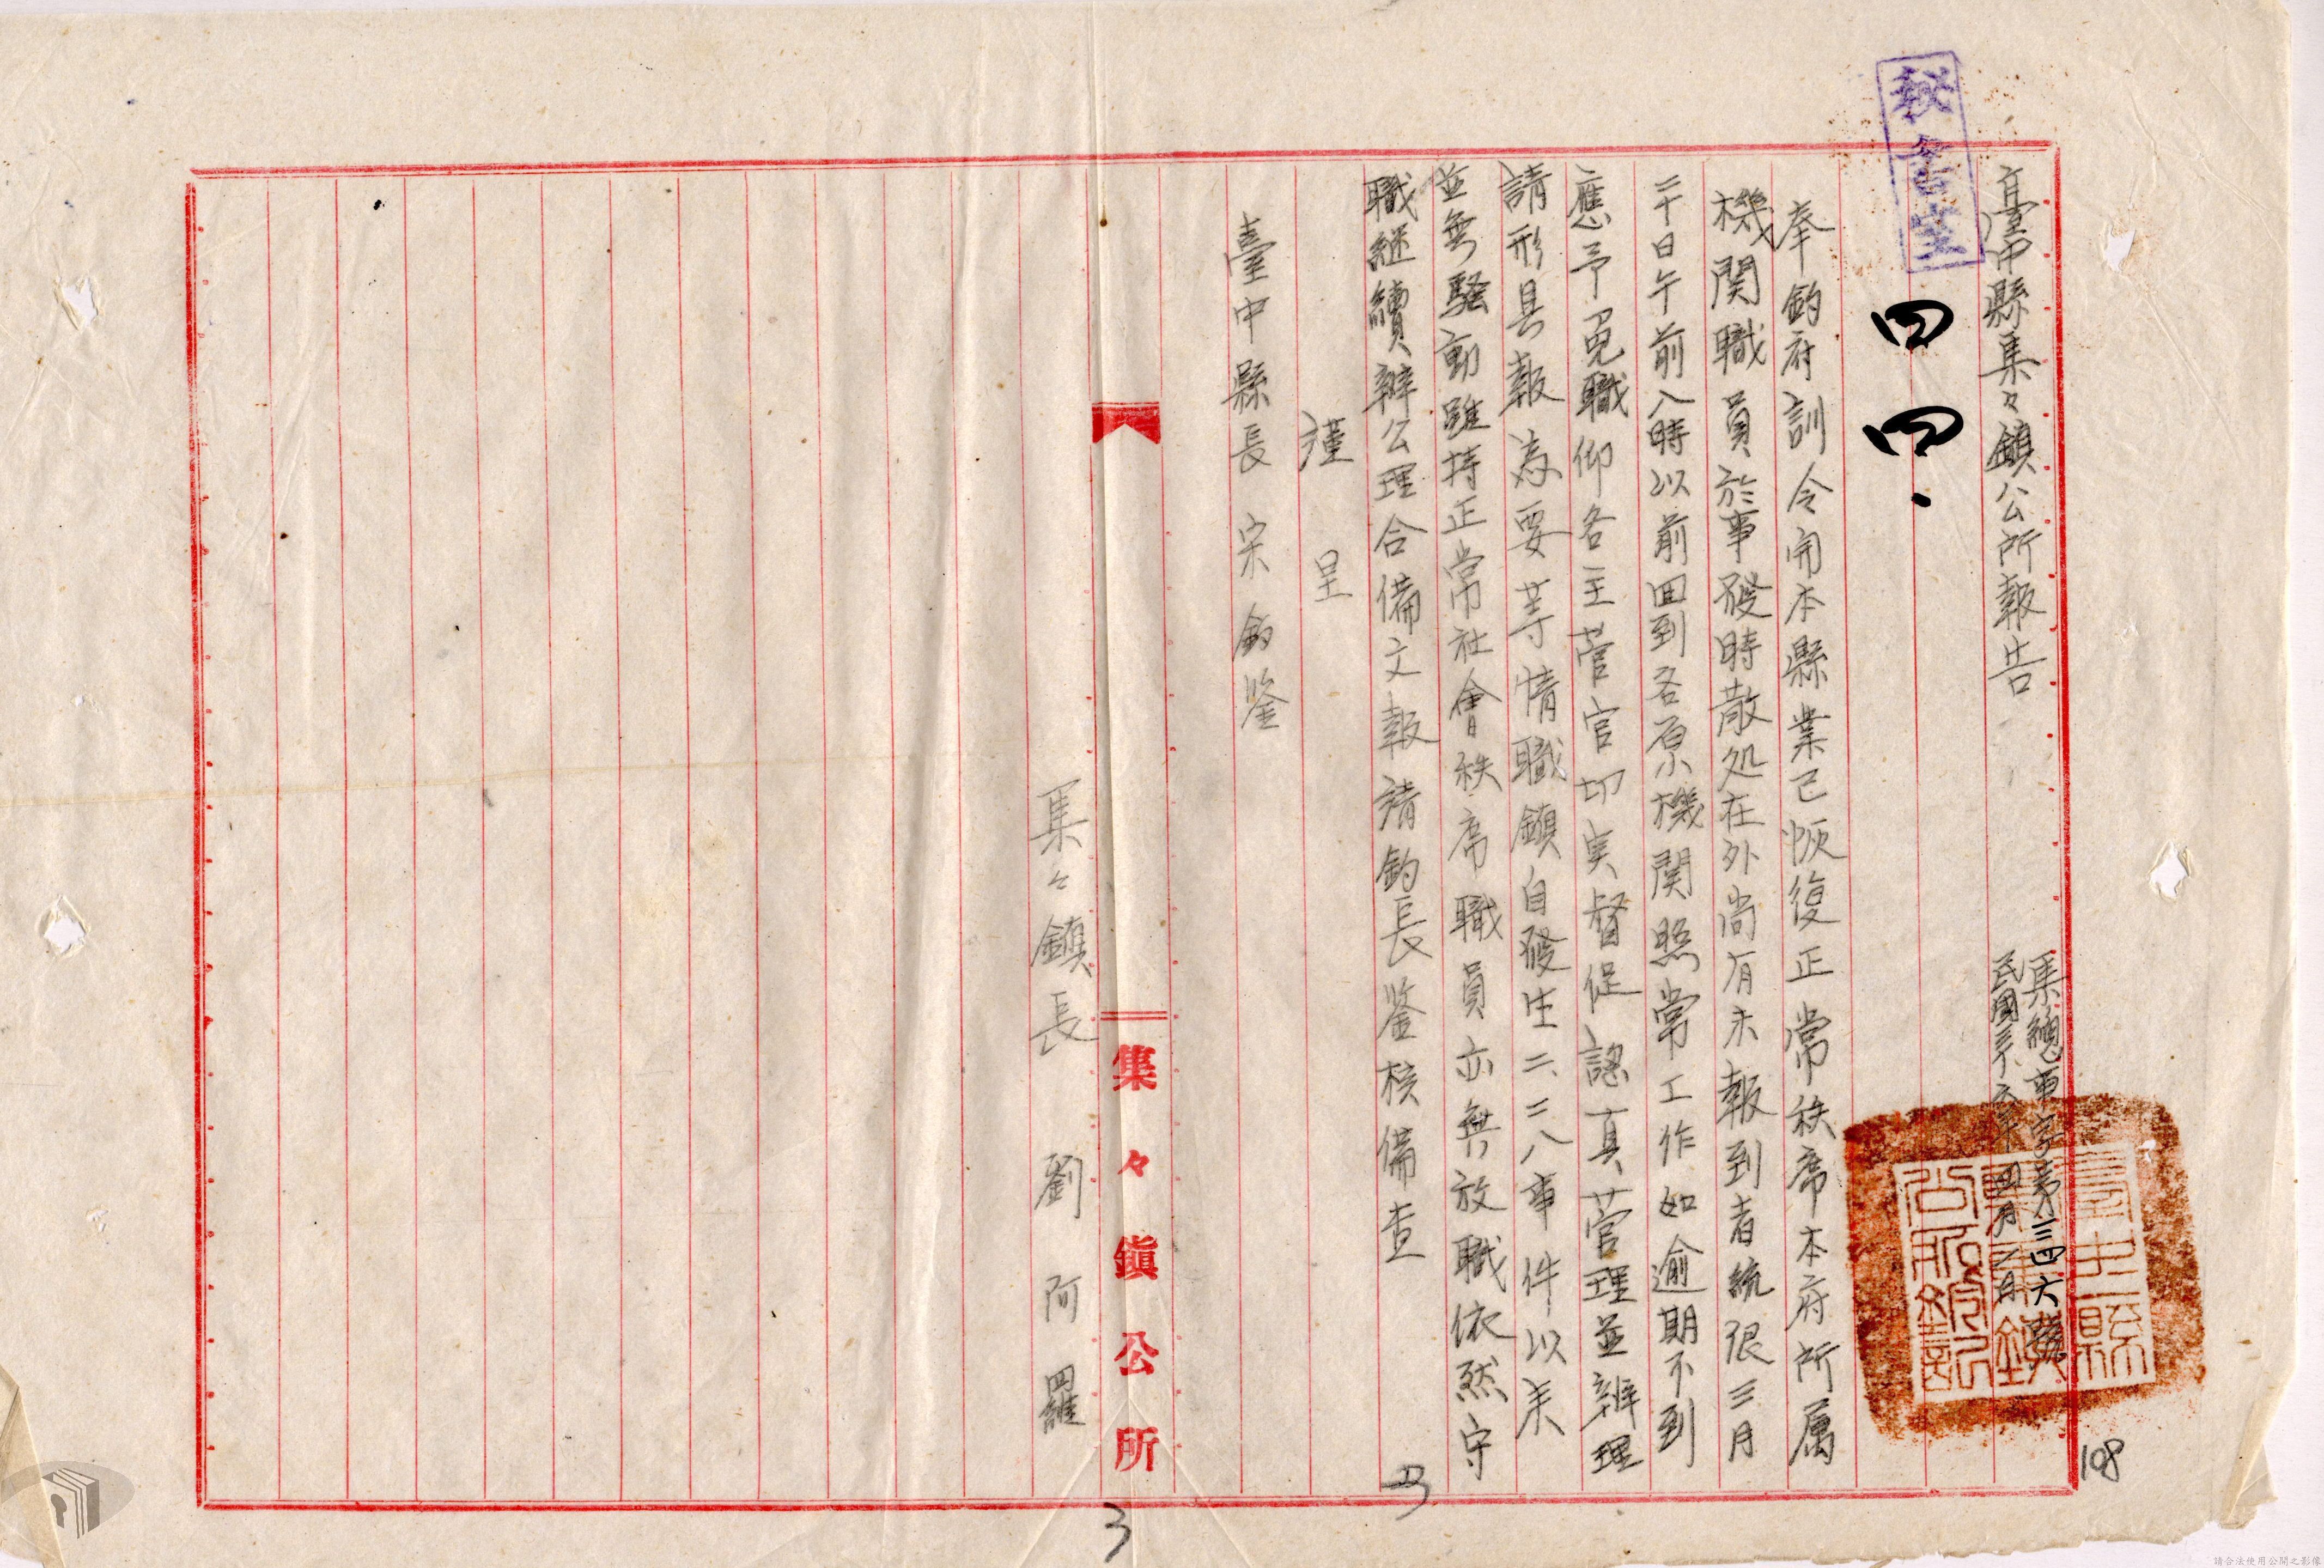 秘書室
臺中縣集々鎮公所報告
集總事字第三四六號
民國三六年四月二日
四四.
奉鈞府訓令開本縣業已恢復正常秩席本府所属
機関職員於事發時散処在外尚有未報到者統限三月
二十日午前八時以前回到各原機関照常工作如逾期不到
應予免職仰各主菅官切実督促認真菅理並辦理
請形具報為要等情職鎮自發生二、二八事件以来
並無騷動雖持正常社會秩席職員亦無放職依然守
職継續辦公理合備文報請鈞長鉴核備查
謹 呈
臺中縣長 宋 鈞鉴
集々鎮長 劉 阿 羅
集々鎮公所
3
108
請合法使用公開之影像